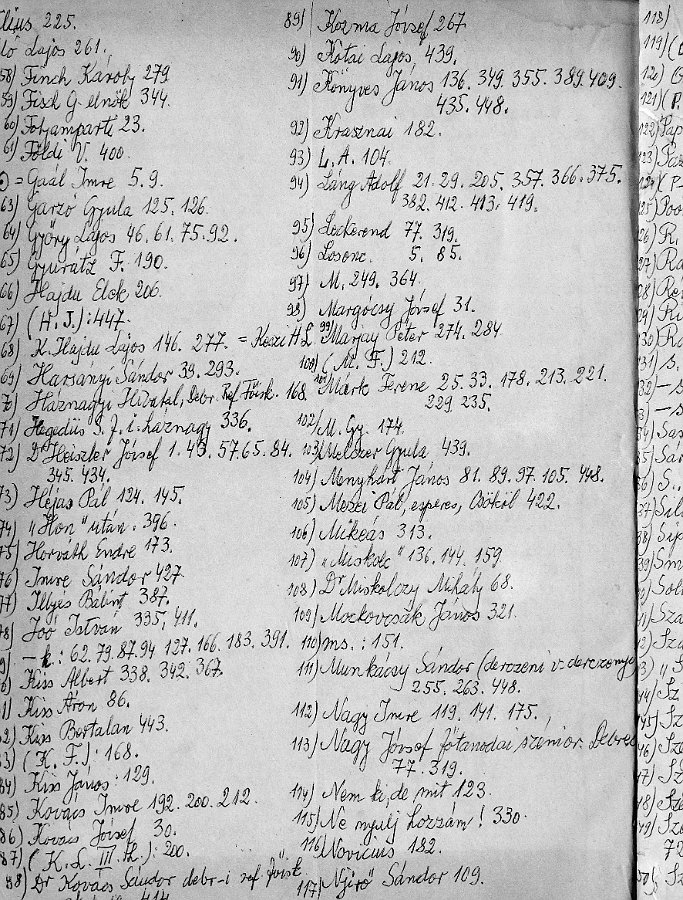 225.
Lajos 261.
58) Finch Károly 279
59) Fisch G. elnök 344.
60) 23.
61) Földi V. 400.
= Gaál Imre 5.9.
63) Garzó Gyula 125.126.
64) Győry Lajos 46.61.75.92.
65) Gyurátz F. 190.
66) Hajdu Elek 206.
67) (H.J.): 447.
68) K. Hajdu Lajos 146. 277. = Keszi H.L.
69) Harsányi Sándor 39.293.
70) Háznagyi Hivatal, Debr. Ref. Főisk. 168.
71) Hegedüs S. f. i. háznagy 336.
72) Dr Heiszler József 1.49.57.65.84.
345.434.
73) Héjas Pál 124. 145.
74) "Hon" után: 396.
75) Horváth Endre 173.
76) Imre Sándor 427
77) Illyés Bálint 387.
78) Joó István 335, 411.
9) -k: 62.79.87.94 127.166.183.391.
0) Kiss Albert 338. 342. 367.
81) Kiss Áron 86.
82) Kiss Bertalan 443.
83) (K. F.): 168.
84) Kiss János: 129.
85) Kovács Imre 192.200.212.
86) Kovács József 30.
87) (K.L. III. th.): 200.
88) Dr Kovács Sándor debr-i ref főisk
89) Kozma József 267
90) Kótai Lajos, 439.
91) Könyves János 136. 349. 355. 389. 409.
435.448.
92) Krasznai 182.
93) L. A. 104.
94) Láng Adolf 21.29.205.357.366.375.
382.412.413.419.
95) Leckerend 77.319.
96) Losonc. 5. 85.
97) M. 249. 364.
98) Margócsy József 31.
99) Marjay Péter 274. 284
100) (M. F.) 212.
101) Márk Ferenc 25.33.178.213.221.
229.235.
102) M. Gy. 174.
103) Melczer Gyula 439.
104) Menyhárt János 81.89.97.105.448.
105) Mezei Pál, esperes, 422.
106) Mikeás 313.
107) "Miskolc" 136.144.159
108) Dr Miskolczy Mihály 68.
109) Mockovcsák János 321.
110) ms.: 151.
111) Munkácsy Sándor (derczeni v. derczenyi
255. 263. 448.
112) Nagy Imre 119.141.175.
113) Nagy József főtanodai szénior. Debrec
77.319.
114) Nem ki, de mit 123.
115) Ne nyulj hozzám! 330.
116) Novicius 182.
117) Nyirő Sándor 109.
118)
119)
120)
121) (P.
122) Pap